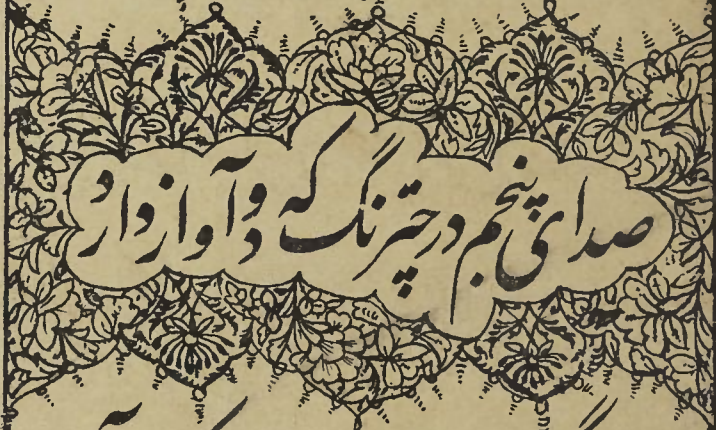 صدای پنجم در چترنگ که دو آواز دارد